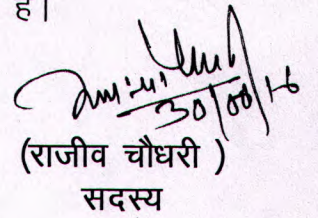 है।
30/08/16
(राजीव चौधरी )
सदस्य